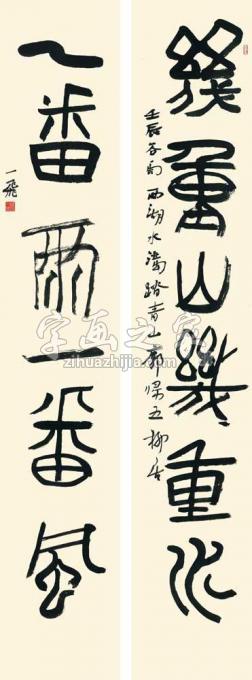 幾重山幾重水
壬辰谷雨西湖水滿踏青山郭歸五柳舍
一番雨一番風
一飛
字画之家
zihuazhijia.com